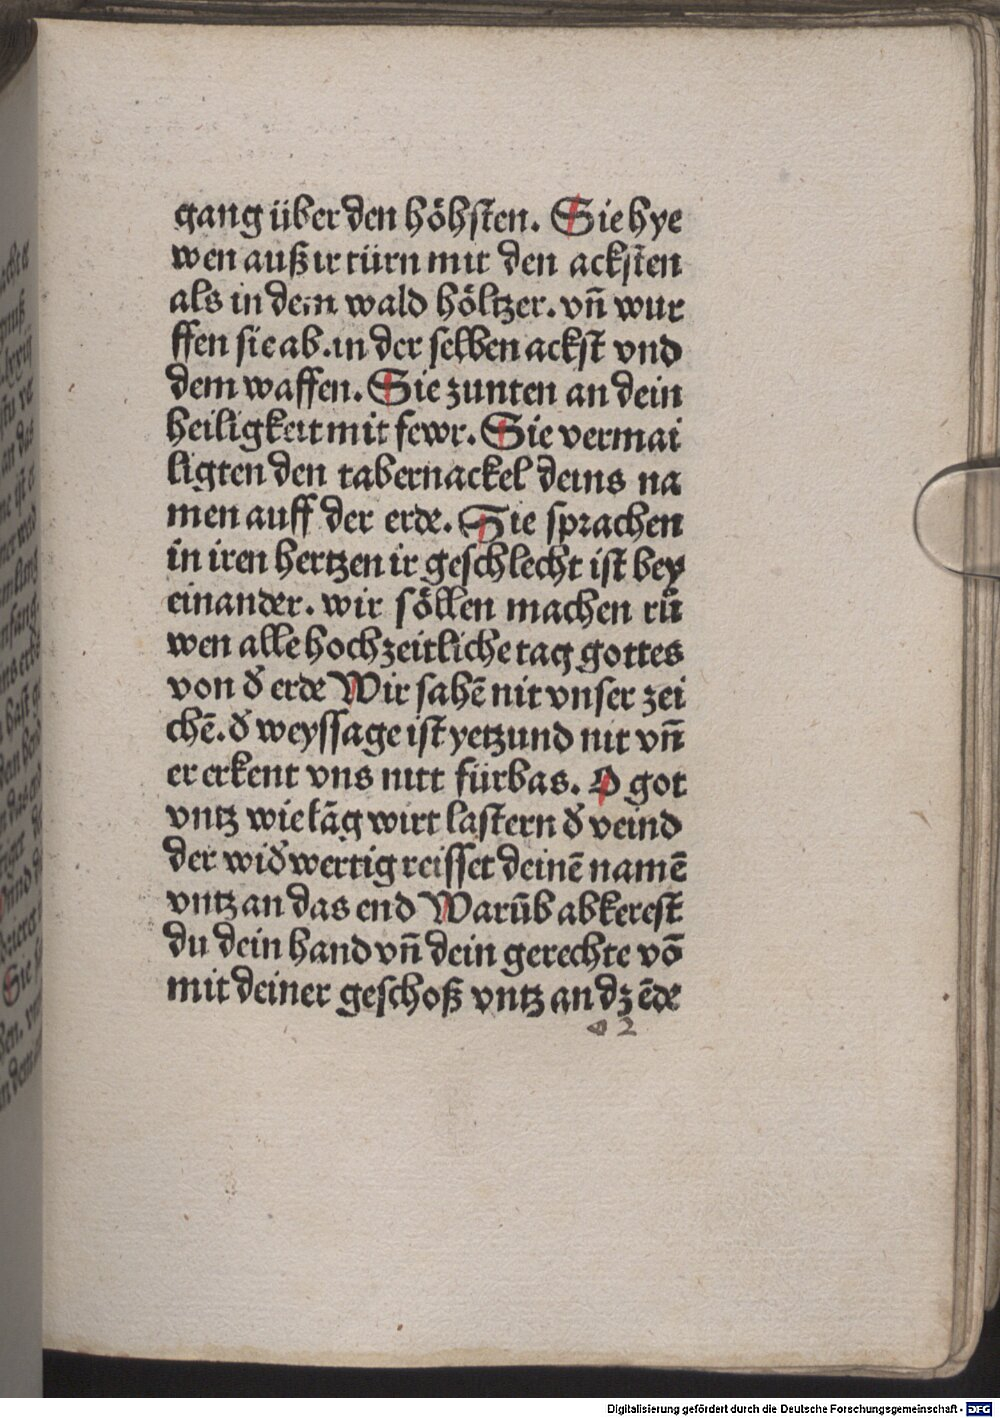 gang über den höhsten. Sie hye
wen auß ir türn mit den acksten
als in dem wald höltzer. vñ wur
ffen sie ab. in der selben ackst vnd
dem waffen. Sie zunten an dein
heiligkeit mit fewr. Sie vermai
ligten den tabernackel deins na
men auff der erde. Sie sprachen
in iren hertzen ir geschlecht ist bey
einander. wir söllen machen rů
wen alle hochzeitliche tag gottes
von d̕ erde Wir sahē nit vnser zei
chē. d̕ weyssage ist yetzund nit vñ
er erkent vns nitt fürbas. O got
vntz wie lāg wirt lastern d̕ veind
der wid̕wertig reisset deinē namē
vntz an das end Warūb abkerest
du dein hand vñ dein gerechte vō
mit deiner geschoß vntz an dz ēde
Digitalisierung gefördert durch die Deutsche Forschungsgemeinschaft - DFG